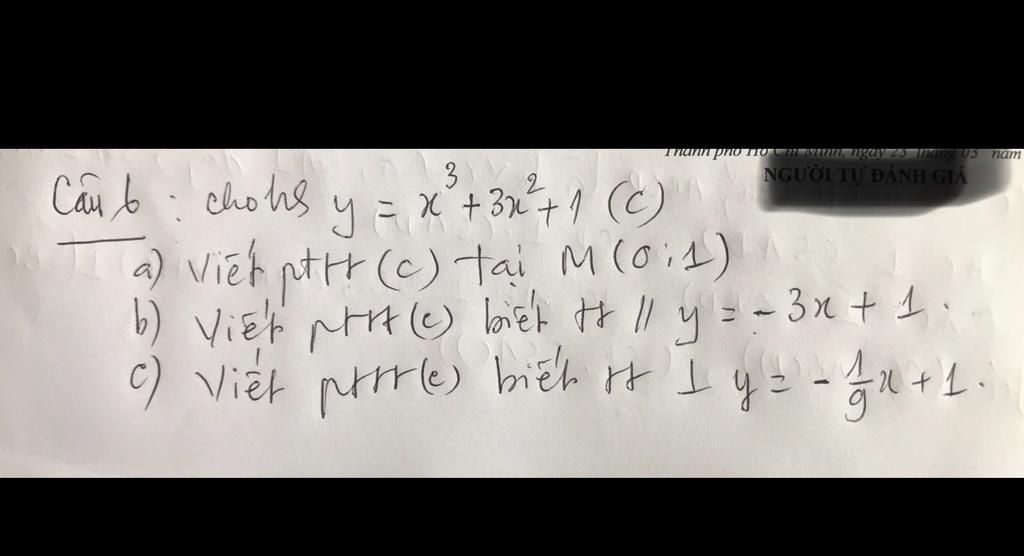 Thành phố Hồ Chí Minh, ngày 23 tháng 03 năm
NGƯỜI TỰ ĐÁNH GIÁ
Câu 6 : cho hs y = x³ + 3x² + 1 (C)
a) Viết pttt (C) tại M(0;1)
b) Viết pttt (C) biết tt // y = -3x + 1.
c) Viết pttt (C) biết tt ⊥ y = -1/9x + 1.